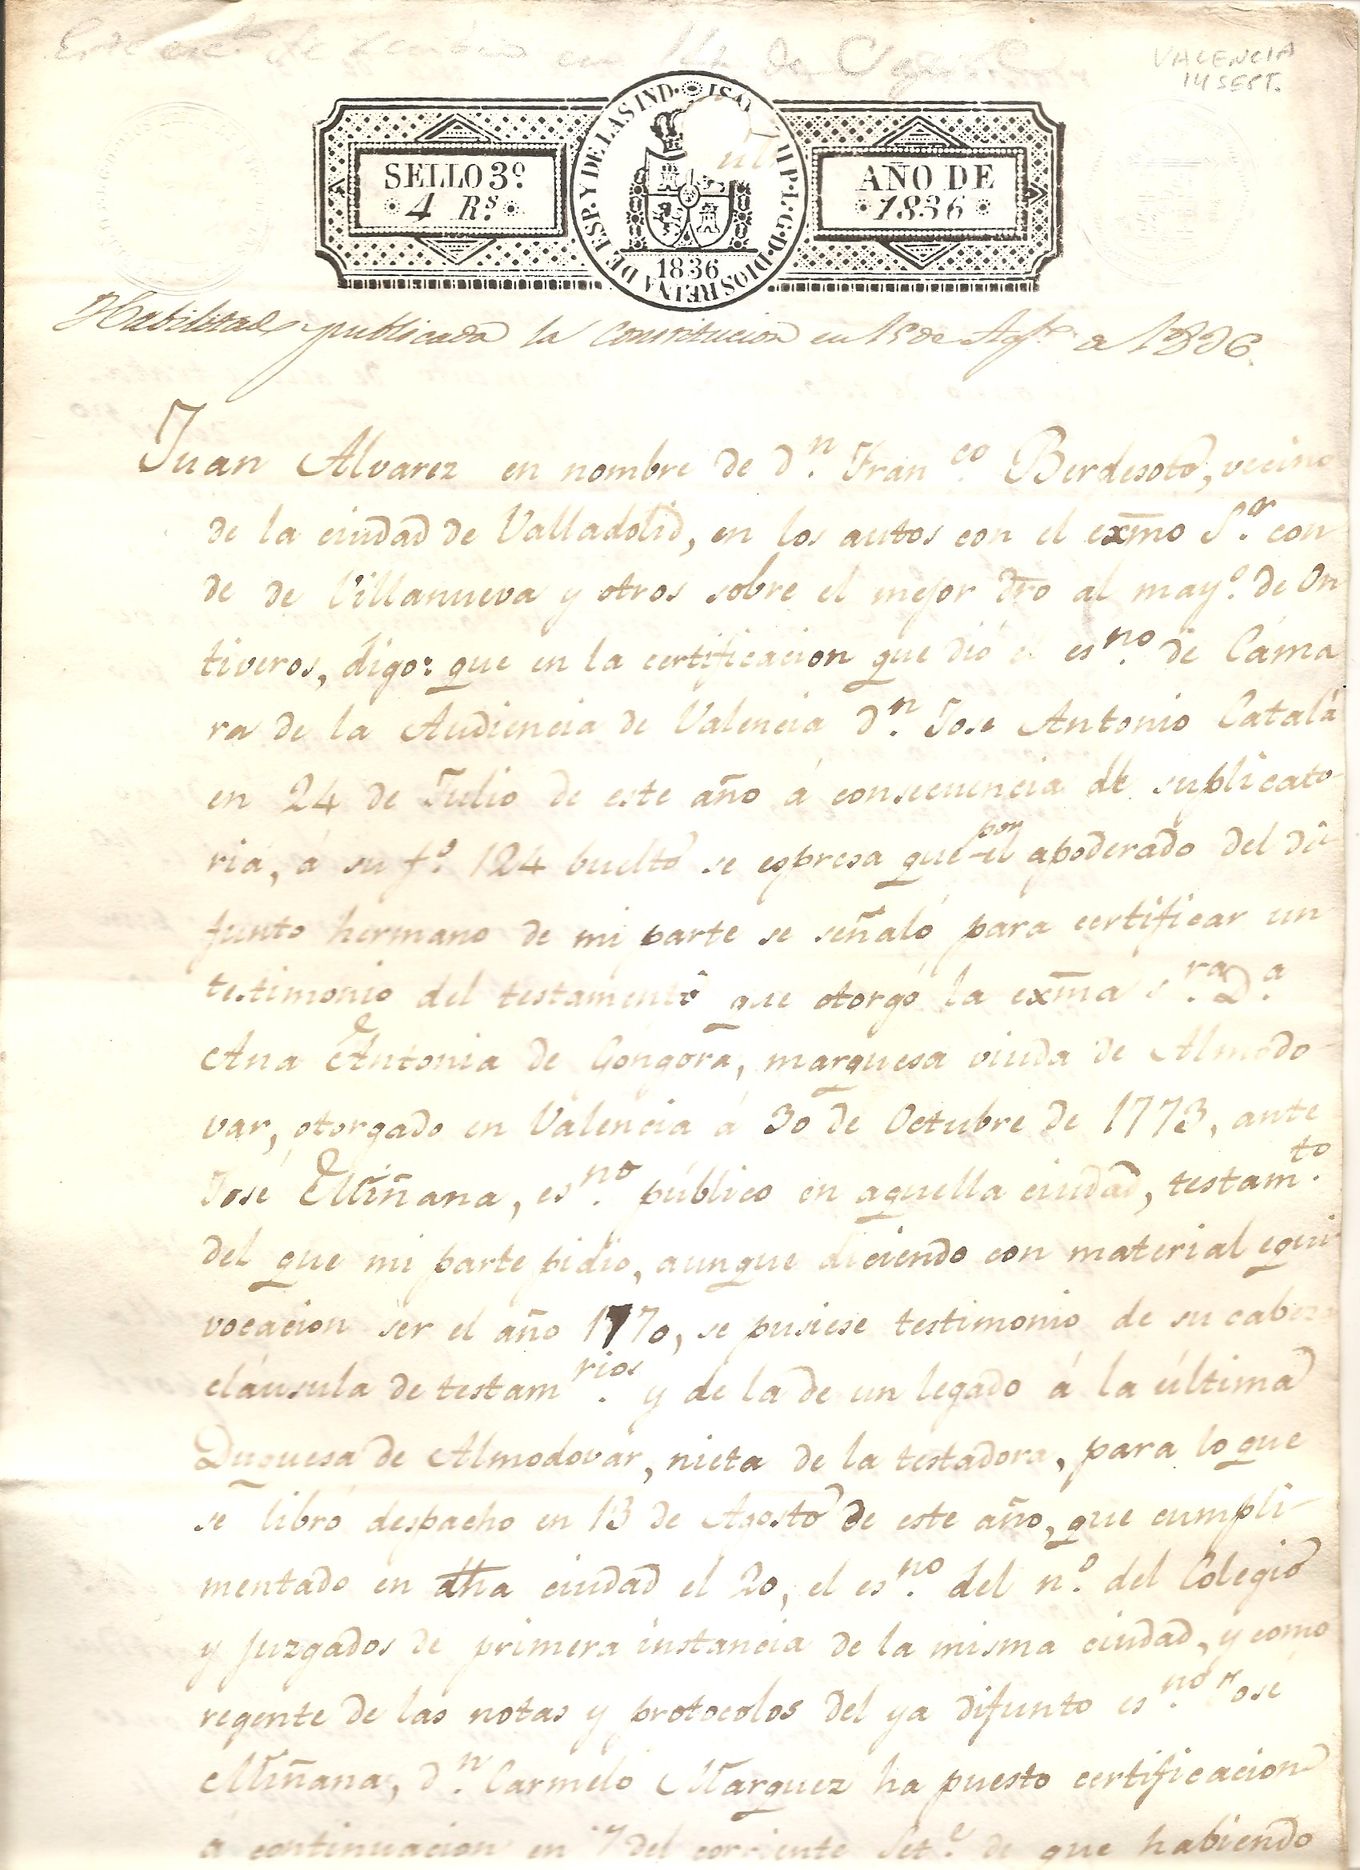 VALENCIA
14 SEPT.
SELLO 3º
4 Rs.
ESP. Y DE LAS IND.
P. L. G. D. DIOS REINA DE
1836
AÑO DE
1836
Habilitado, publicada la Constitucion en 15 de Agto. a 1836.
Juan Alvarez en nombre de dn. Franco. Berdesoto, vecino
de la ciudad de Valladolid, en los autos con el exmo Sr. con
de de Villanueva y otros sobre el mejor dro al mayo. de On
tiveros, digo: que en la certificacion que dió el esno. de Cáma
ra de la Audiencia de Valencia dn. Jose Antonio Catalá
en 24 de Julio de este año á consecuencia de suplicato
ria, á su fo. 124 buelto se espresa que por el apoderado del di
funto hermano de mi parte se señaló para certificar un
testimonio del testamento que otorgó la exma sra. Da.
Ana Antonia de Góngora, marquesa viuda de Almodo
var, otorgado en Valencia á 30 de Octubre de 1773, ante
José Miñana, esno. público en aquella ciudad, testamto.
del que mi parte pidió, aunque diciendo con material equi
vocacion ser el año 1770, se pusiese testimonio de su cabeza
cláusula de testamrios. y de la de un legado á la última
Duquesa de Almodovar, nieta de la testadora, para lo que
se libró despacho en 13 de Agosto de este año, que cumpli-
mentado en dha ciudad el 20, el esno. del no. del Colegio
y juzgados de primera instancia de la misma ciudad, y como
regente de las notas y protocolos del ya difunto esno. José
Miñana, dn. Carmelo Marquez ha puesto certificacion
á continuacion en 7 del corriente Sete. de que habiendo